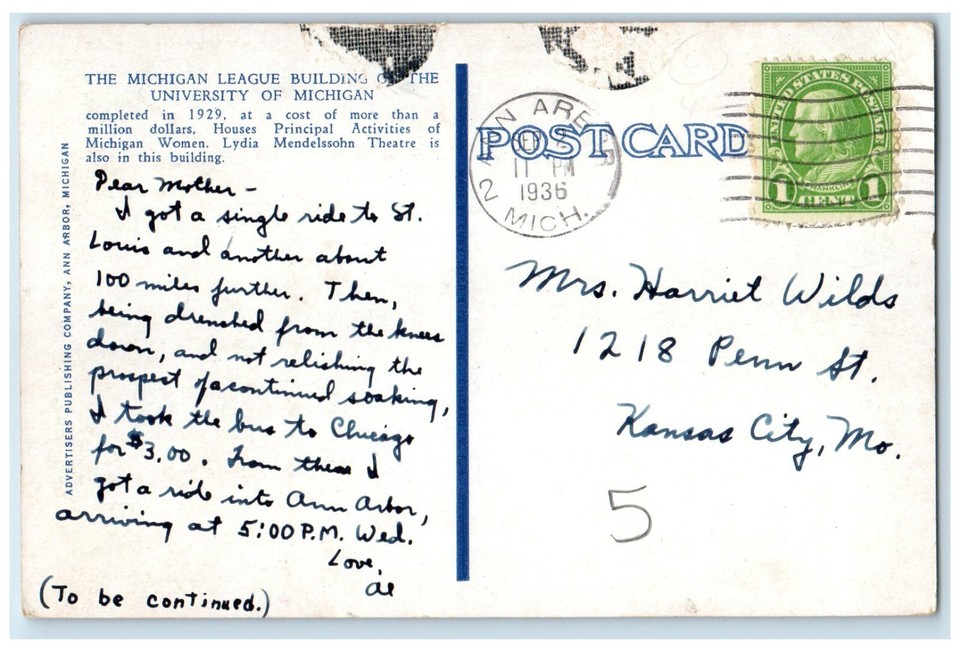 THE MICHIGAN LEAGUE BUILDING OF THE
UNIVERSITY OF MICHIGAN
completed in 1929, at a cost of more than a
million dollars, Houses Principal Activities of
Michigan Women. Lydia Mendelssohn Theatre is
also in this building.
ADVERTISERS PUBLISHING COMPANY, ANN ARBOR, MICHIGAN
Dear Mother –
I got a single ride to St.
Louis and another about
100 miles further. Then,
being drenched from the knees
down, and not relishing the
prospect of a continued soaking,
I took the bus to Chicago
for $3.00. From there I
got a ride into Ann Arbor,
arriving at 5:00 P.M. Wed.
Love,
Al
(To be continued.)
POST CARD
ANN ARBOR
SEP
11 PM
1936
MICH.
2
UNITED STATES POSTAGE
FRANKLIN
1 CENT 1
Mrs. Harriet Wilds
1218 Penn St.
Kansas City, Mo.
5